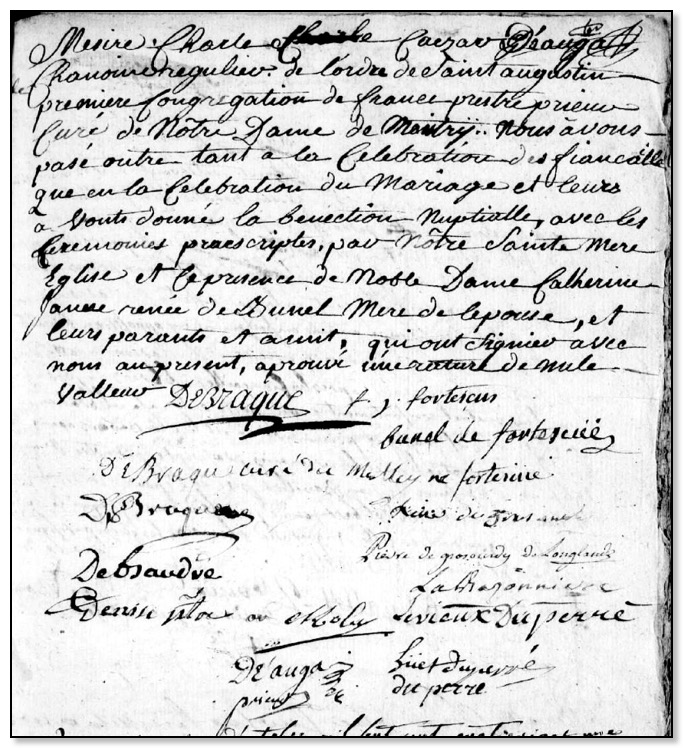 Mesire Charle Caezar Déauga
Chanoine regulier de l'ordre de Saint augustin
premiere Congregation de france prestre prieur
Curé de Nôtre Dame de Meutry. Nous avons
pasé outre tant a la Celebration des fiancaille
que en la Celebration du Mariage et leurs
avonts donné la benection Nuptialle, avec les
Ceremonies praescriptes, par Nôtre Sainte Mere
Eglise et Cepresence de Noble Dame Catherine
Janne renée de Bunel Mere de lepouse, et
leurs parants et amit, qui ont Signier avec
nous au present, aprouvé une rature de nule
Valleur DeBraque f j fortescus
bunel de fortescüe
DeBraque curé de fortescue
DeBraque
Pierre de Longlande
Debaudre La Bazonniere
Denise Levieux Duperré
Dé'auga huet Duperré
prieur duperré